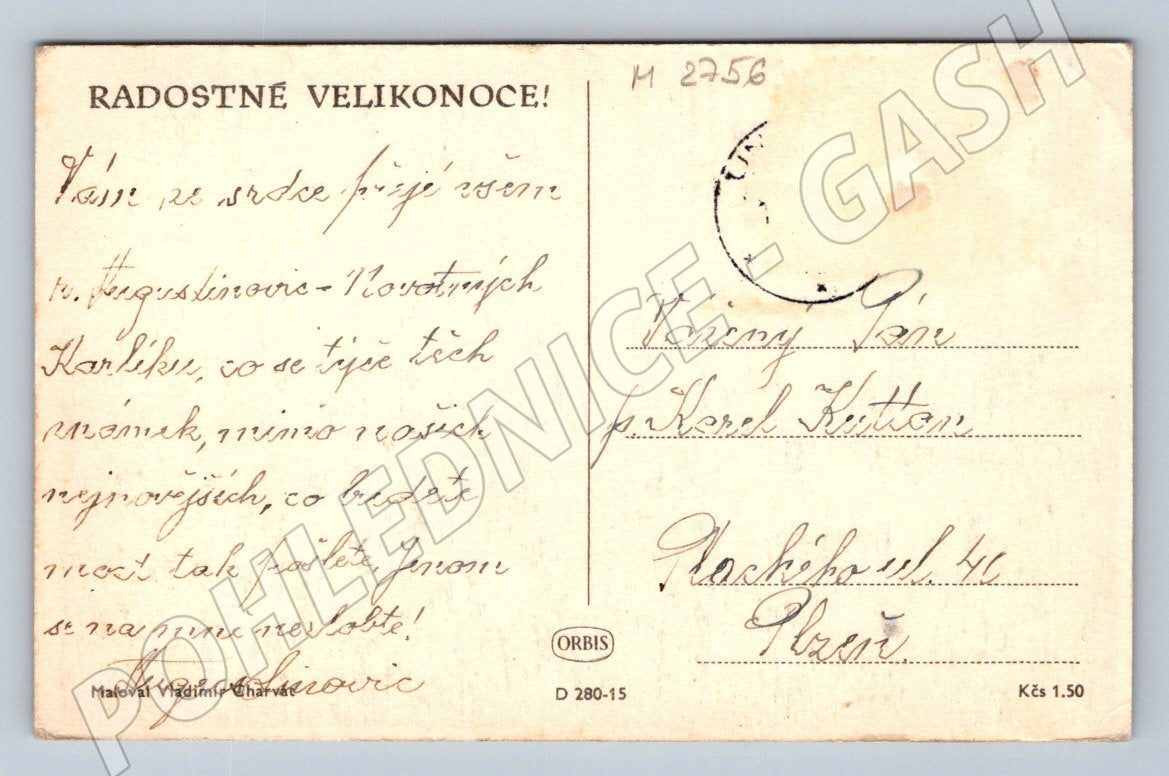 RADOSTNÉ VELIKONOCE!
M 2756
Vám ze srdce přejé všem
r. Augustinovic - Novotných
Karlíku, co se týče těch
známek, mimo našich
nejnovějších, co budete
moct tak pošlete. Jenom
se na mně nezlobte!
Augustinovic
Maloval Vladimír Charvát
ORBIS
D 280-15
Kčs 1.50
Vážený Pán
p. Karel Kuttan
Plackého ul. 41
Plzeň.
POHLEDNICE - GASH